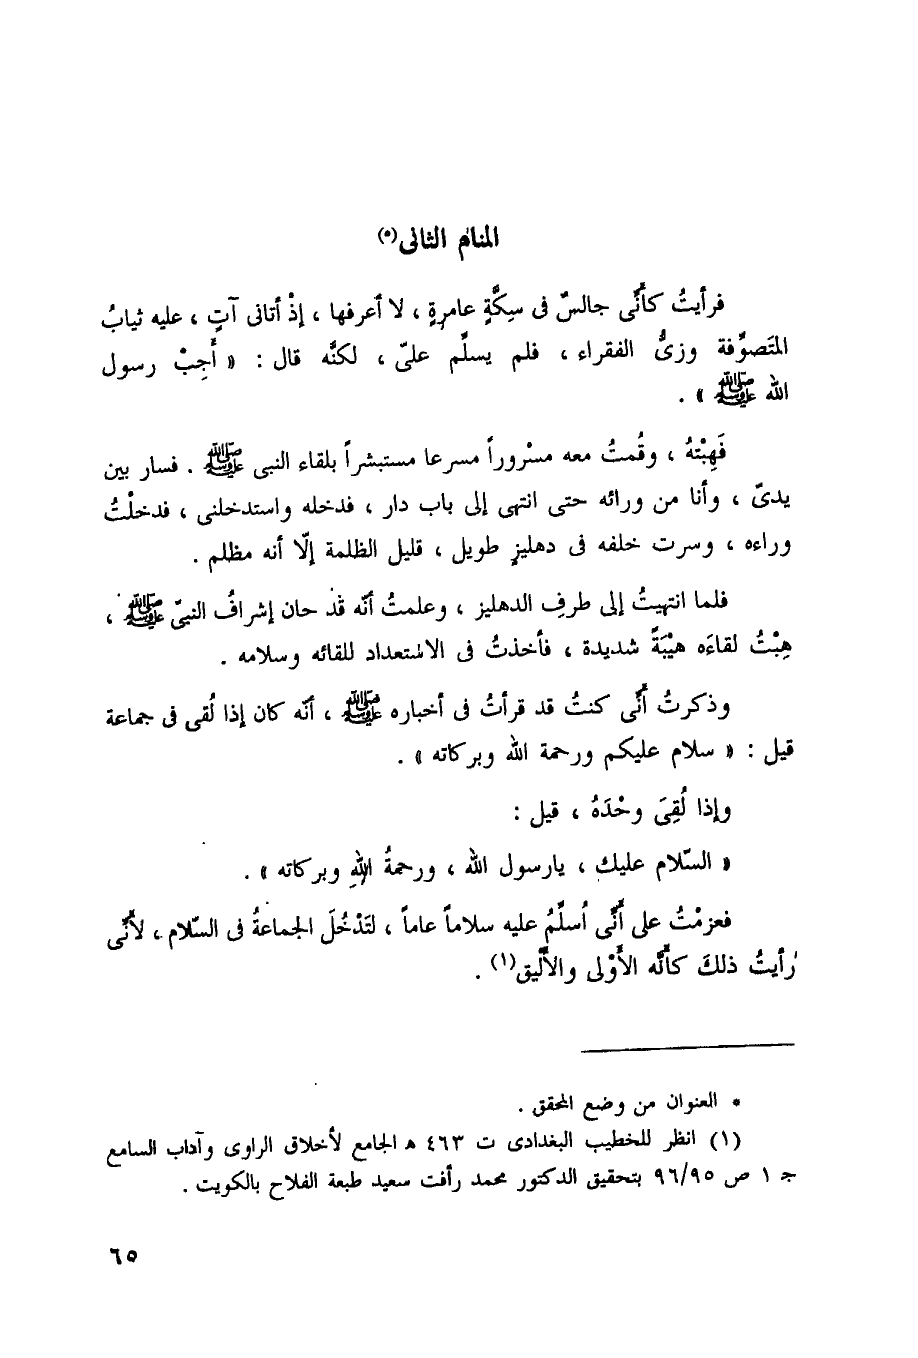 المنام الثانى(*)
فرأيتُ كأنَّى جالسٌ فى سِكَّةٍ عامرةٍ ، لا أعرفها ، إذْ أتانى آتٍ ، عليه ثيابُ
المتَصوِّفة وزىُّ الفقراء ، فلم يسلِّم علىّ ، لكنَّه قال : « أَجِبْ رسول
الله ﷺ » .
فَهِبْتهُ ، وقُمتُ معه مسْروراً مسرعا مستبشراً بلقاء النبى ﷺ . فسار بين
يدىّ ، وأنا من ورائه حتى انتهى إلى باب دار ، فدخله واستدخلنى ، فدخلْتُ
وراءه ، وسرت خلفه فى دهليزٍ طويل ، قليل الظلمة إلّا أنه مظلم .
فلما انتهيتُ إلى طرفِ الدهليز ، وعلمتُ أنّه قد حان إشرافُ النبىّ ﷺ ،
هِبْتُ لقاءَه هيْبَةً شديدة ، فأخذتُ فى الاستعداد للقائه وسلامه .
وذكرتُ أنَّى كنتُ قد قرأتُ فى أخباره ﷺ ، أنّه كان إذا لُقى فى جماعة
قيل : « سلام عليكم ورحمة الله وبركاته » .
وإذا لُقِىَ وحْدَهُ ، قيل :
« السّلام عليك ، يارسول الله ، ورحمةُ اللهِ وبركاته » .
فعزمْتُ على أنَّى أسلِّمُ عليه سلاماً عاماً ، لتَدْخُلَ الجماعةُ فى السّلام ، لأنَّى
رأيتُ ذلكَ كأنَّه الأَوْلى والأَليق(١) .
* العنوان من وضع المحقق .
(١) انظر للخطيب البغدادى ت ٤٦٣ هـ الجامع لأخلاق الراوى وآداب السامع
جـ ١ ص ٩٦/٩٥ بتحقيق الدكتور محمد رأفت سعيد طبعة الفلاح بالكويت .
٦٥